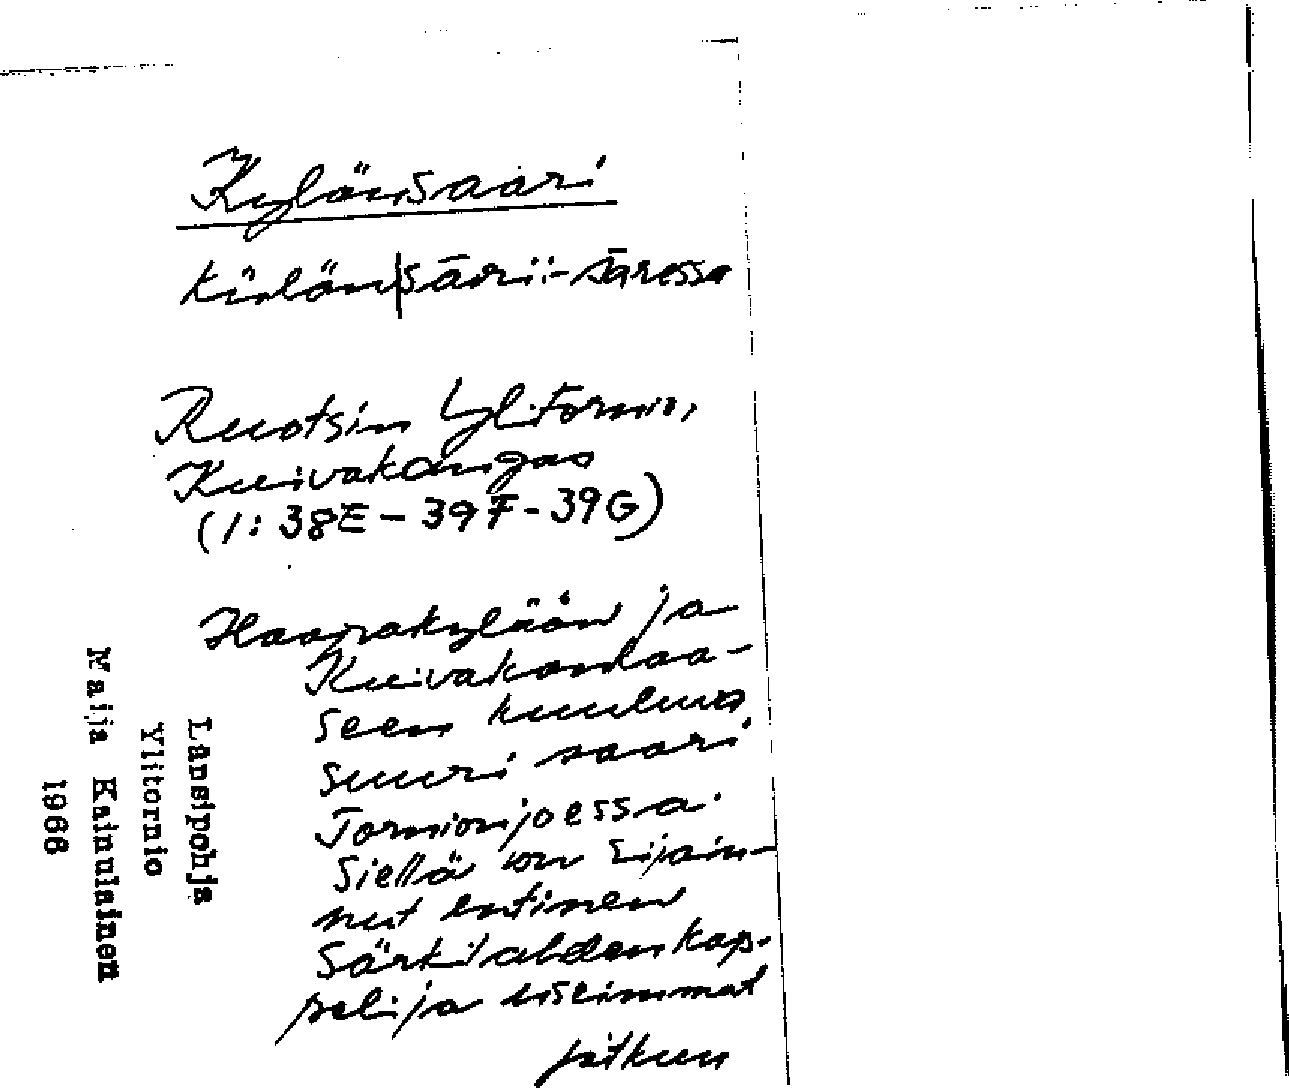 Kylänsaari
külän|sāri: -sāressa
Ruotsin Ylitornio,
Kuivakangas
(1: 38E - 39F - 39G)
Haapakylään ja
Kuivakankaa-
seen kuuluva
suuri saari
Tornionjoessa.
Siellä on sijain-
nut entinen
Särkilahden kap-
peli ja useimmat
jatkuu
Länsipohja
Ylitornio
Maija Kainulainen
1966